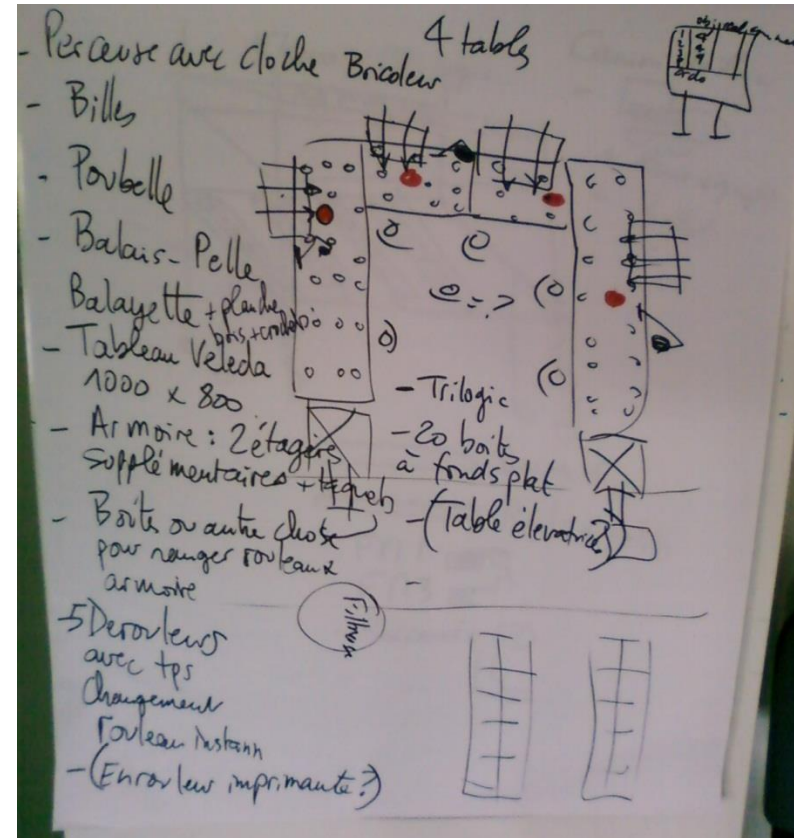 - Perceuse avec cloche Bricoleur
4 tables
- Billes
- Poubelle
- Balais - Pelle
Balayette + planche
bois + crochets
- Tableau Veleda
1000 x 800
- Armoire : 2 étagère
supplémentaires + taquets
- Boites ou autre chose
pour ranger rouleaux
armoire
- 5 Derouleurs
avec tps
changement
rouleau instann
- (Enrouleur imprimante ?)
= ?
- Trilogic
- 20 boits
à fonds plat
- (Table élevatrice ?)
-
Filmeuse